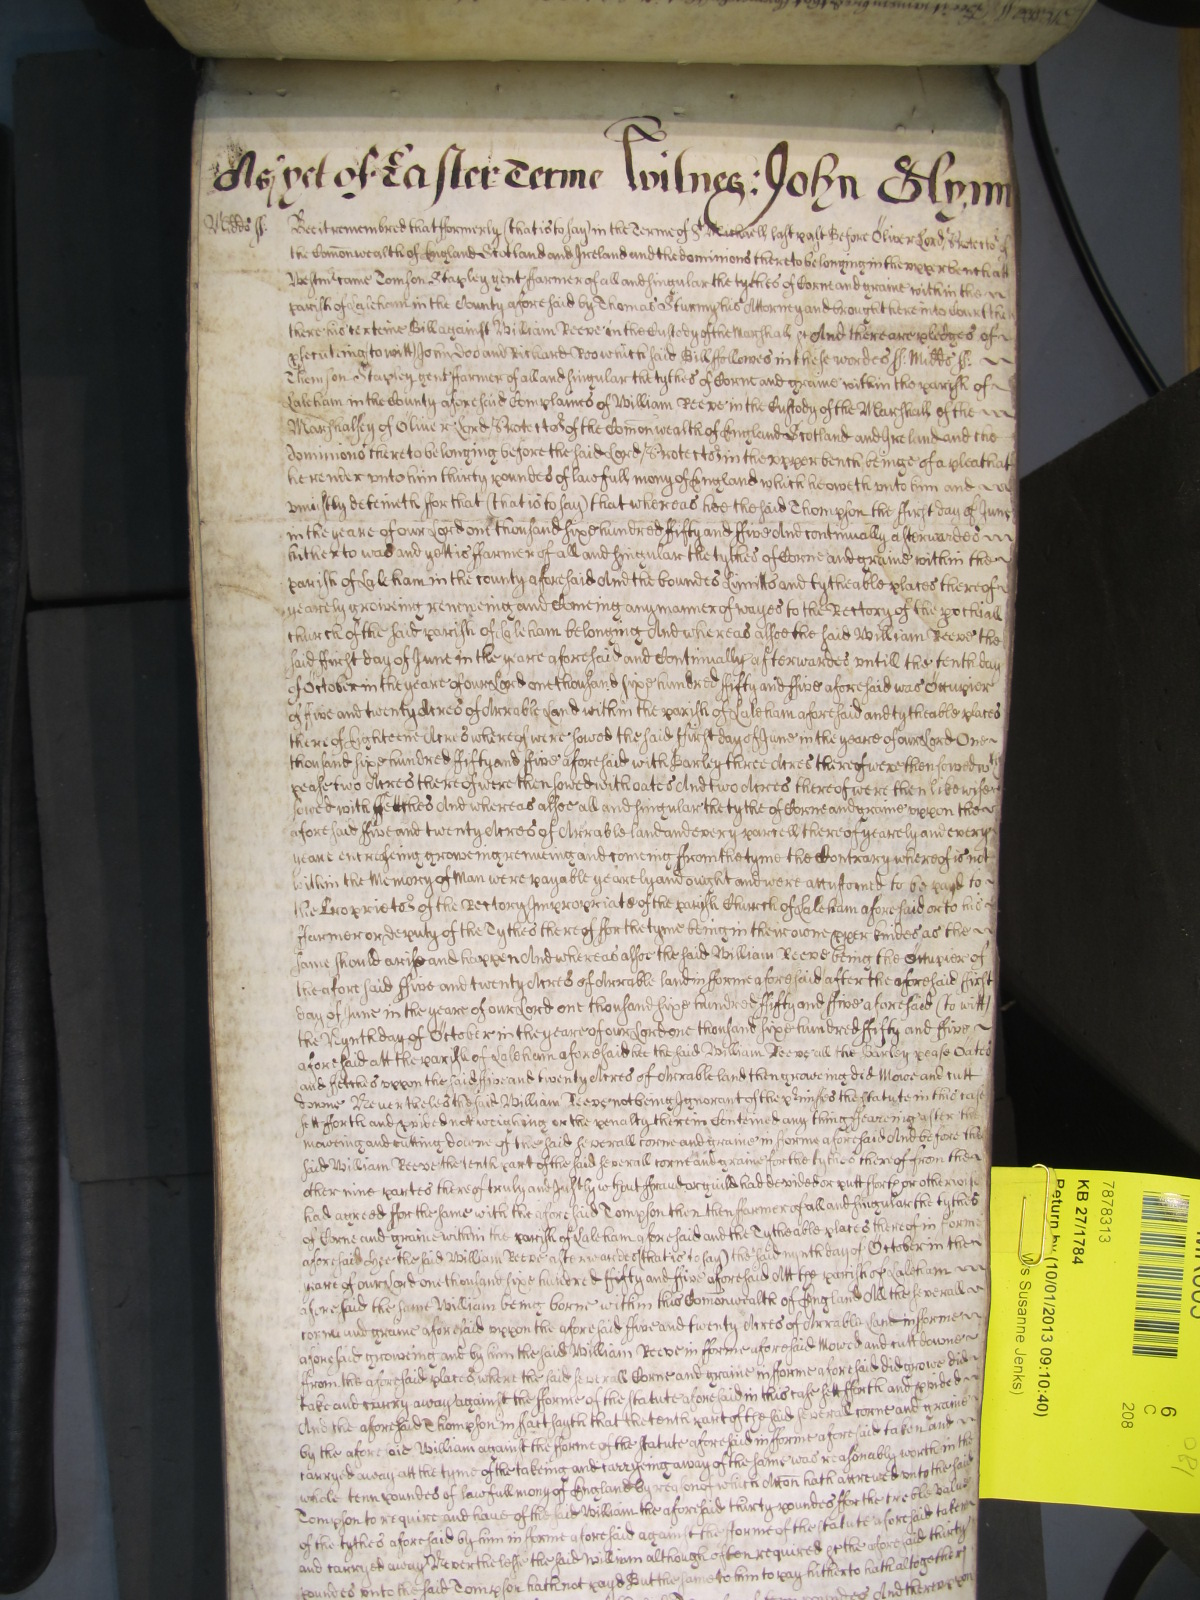 As yet of Easter Terme Witnes: John Glynn
Midds ss. Bee it remembred that fformerly (that is to say) in the Terme of St Michaell last past Before Oliver Lord Protector of
the Comonwealth of England Scotland and Ireland and the dominions thereto belonging in the vpper bench att
Westmr came Tomson Stapley gent ffarmer of all and singular the tythes of Corne and graine within the
parish of Laleham in the County aforesaid by Thomas Sturmy his Attorney and brought here into Court then
there his certeine Bill against William Reeve in the Custody of the Marshall &c And there are pledges of
psecuting to witt John Doo and Richard Roo which said Bill followes in these wordes ss. Midds ss.
Thomson Stapley gent ffarmer of all and singular the tythes of Corne and graine within the parish of
Laleham in the County aforesaid Complaines of William Reeve in the Custody of the Marshall of the
Marshalsey of Oliver Lord Protector of the Comonwealth of England Scotland and Ireland and the
dominions thereto belonging before the said Lord Protector in the vpper bench beinge of a plea that
he render vnto him thirty poundes of lawfull mony of England which he oweth vnto him and
vniustly deteineth ffor that (that is to say) that whereas hee the said Thompson the ffirst day of June
in the yeare of our Lord one thousand sixe hundred ffifty and ffive And continually afterwardes
hitherto was and yett is ffarmer of all and singular the tythes of Corne and graine within the
parish of Laleham in the county aforesaid And the boundes Lymitts and tytheable places thereof
yearely groweing reneweing and Comeing any manner of wayes to the Rectory of the pochiall
church of the said parish of Laleham belonging And whereas alsoe the said William Reeve the
said ffirst day of June in the yeare aforesaid and Continually afterwardes untill the tenth day
of October in the yeare of our Lord one thousand sixe hundred ffifty and ffive aforesaid was Occupier
of ffive and twenty Acres of Arrable Land within the parish of Laleham aforesaid and tytheable places
thereof Eighteene Acres whereof were sowed the said ffirst day of June in the yeare of our Lord One
thousand sixe hundred ffifty and ffive aforesaid with Barley three Acres thereof were then sowed wth
pease two Acres thereof were then sowed with oates And two Acres thereof were then likewise
sowed with ffetches And whereas alsoe all and singular the tythe of Corne and graine vppon the
aforesaid ffive and twenty Acres of Arrable land and every parcell thereof yearely and every
yeare encreseing groweing reneweing and comeing ffrom the tyme the Contrary whereof is not
within the Memory of Man were payable yearely and ought and were accustomed to be payd to
the Proprietor of the Rectory Impropriate of the parish Church of Laleham aforesaid or to his
ffarmer or deputy of the Tythes thereof ffor the tyme being in their owne pper kindes as the
same should arise and happen And whereas alsoe the said William Reeve being the Occupier of
the aforesaid ffive and twenty Acres of Arrable land in forme aforesaid after the aforesaid ffirst
day of June in the yeare of our Lord one thousand sixe hundred ffifty and ffive aforesaid (to witt)
the Nynth day of October in the yeare of our Lord one thousand sixe hundred ffifty and ffive
aforesaid att the parish of Laleham aforesaid hee the said William Reeve all the Barley pease Oates
and ffetches vppon the said ffive and twenty Acres of Arrable land then groweing did Mowe and cutt
downe Neverthelesse the said William Reeve not being Ignorant of the pmisses the statute in this case
sett fforth and pvided not weighing or the penalty therein Conteined any thing ffeareing after the
moweing and cutting downe of the said severall corne and graine in forme aforesaid And before the
said William Reeve the tenth part of the said severall corne and graine for the tythes thereof from the
other nine partes thereof truly and Justly without ffraud or guild had devided or putt fforth or otherwise
had agreed ffor the same with the aforesaid Tompson then then ffarmer of all and singular the tythes
of Corne and graine within the parish of Laleham aforesaid and the Tytheable places thereof in forme
aforesaid hee the said William Reeve afterwardes (that is to say) the said nynth day of October in the
yeare of our Lord one thousand sixe hundred ffifty and ffive aforesaid Att the parish of Laleham
aforesaid the same William being borne within this Comonwealth of England All the severall
corne and graine aforesaid vppon the aforesaid ffive and twenty Acres of Arrable land in forme
aforesaid groweing and by him the said William Reeve in fforme aforesaid Mowed and cutt downe
ffrom the aforesaid places where the said severall Corne and graine in fforme aforesaid did growe did
take and carry away against the fforme of the statute aforesaid in this case sett fforth and pvided
And the aforesaid Thompson in ffact sayth that the tenth part of the said severall corne and graine
by the aforesaid William against the fforme of the statute aforesaid in fforme aforesaid taken and
carryed away att the tyme of the takeing and carryeing away of the same was reasonably worth in the
whole tenn poundes of lawfull mony of England by reason of which Accon hath accrewed vnto the said
Tompson to require and have of the said William the aforesaid thirty poundes ffor the treble value
of the tythes aforesaid by him in fforme aforesaid against the fforme of the statute aforesaid taken
and carryed away Neverthelesse the said William although often required &c the aforesaid thirty
poundes vnto the said Tompson hath not payd But the same to him to pay hitherto hath altogether
poundes And therevpon
7878313
KB 27/1784
Return by (10/01/2013 09:10:40)
Ms Susanne Jenks)
6
C
208